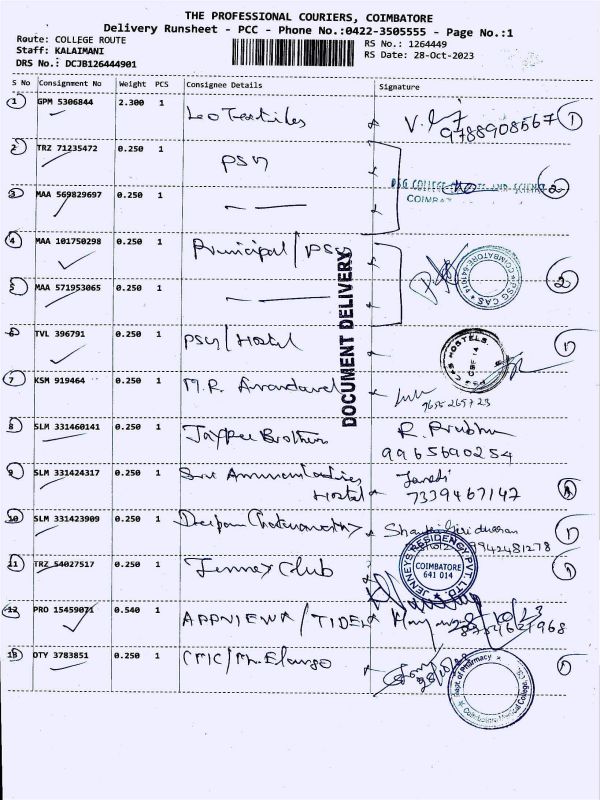 THE PROFESSIONAL COURIERS, COIMBATORE
Delivery Runsheet - PCC - Phone No.:0422-3505555 - Page No.:1
Route: COLLEGE ROUTE
Staff: KALAIMANI
DRS No.: DCJB126444901
RS No.: 1264449
RS Date: 28-Oct-2023
S No Consignment No Weight PCS Consignee Details Signature
1 GPM 5306844 2.300 1 Leo Textiles
9788908567 1
2 TRZ 71235472 0.250 1 PSG
3 MAA 569829697 0.250 1
PSG COLLEGE OF ARTS AND SCIENCE 2
4 MAA 101750298 0.250 1 Principal/PSG
5 MAA 571953065 0.250 1
PSG CAS COIMBATORE 2
6 TVL 396791 0.250 1 PSG/Hostel
CAS HOSTELS 1
7 KSM 919464 0.250 1 M.R.
8 SLM 331460141 0.250 1 Jaypee Brothers R. Prabhu
9965690254
9 SLM 331424317 0.250 1
Hostel 7339467147
10 SLM 331423909 0.250 1
9942481278 1
11 TRZ 54027517 0.250 1 Jenney Club
JENNEYS RESIDENCY PVT. LTD.
COIMBATORE
641 014 1
12 PRO 15459071 0.540 1 APPNIEWA/TIDEL
13 DTY 3783851 0.250 1 CMC/M. Elango
Dept. of Pharmacy
Coimbatore Medical College 1
DOCUMENT DELIVERY